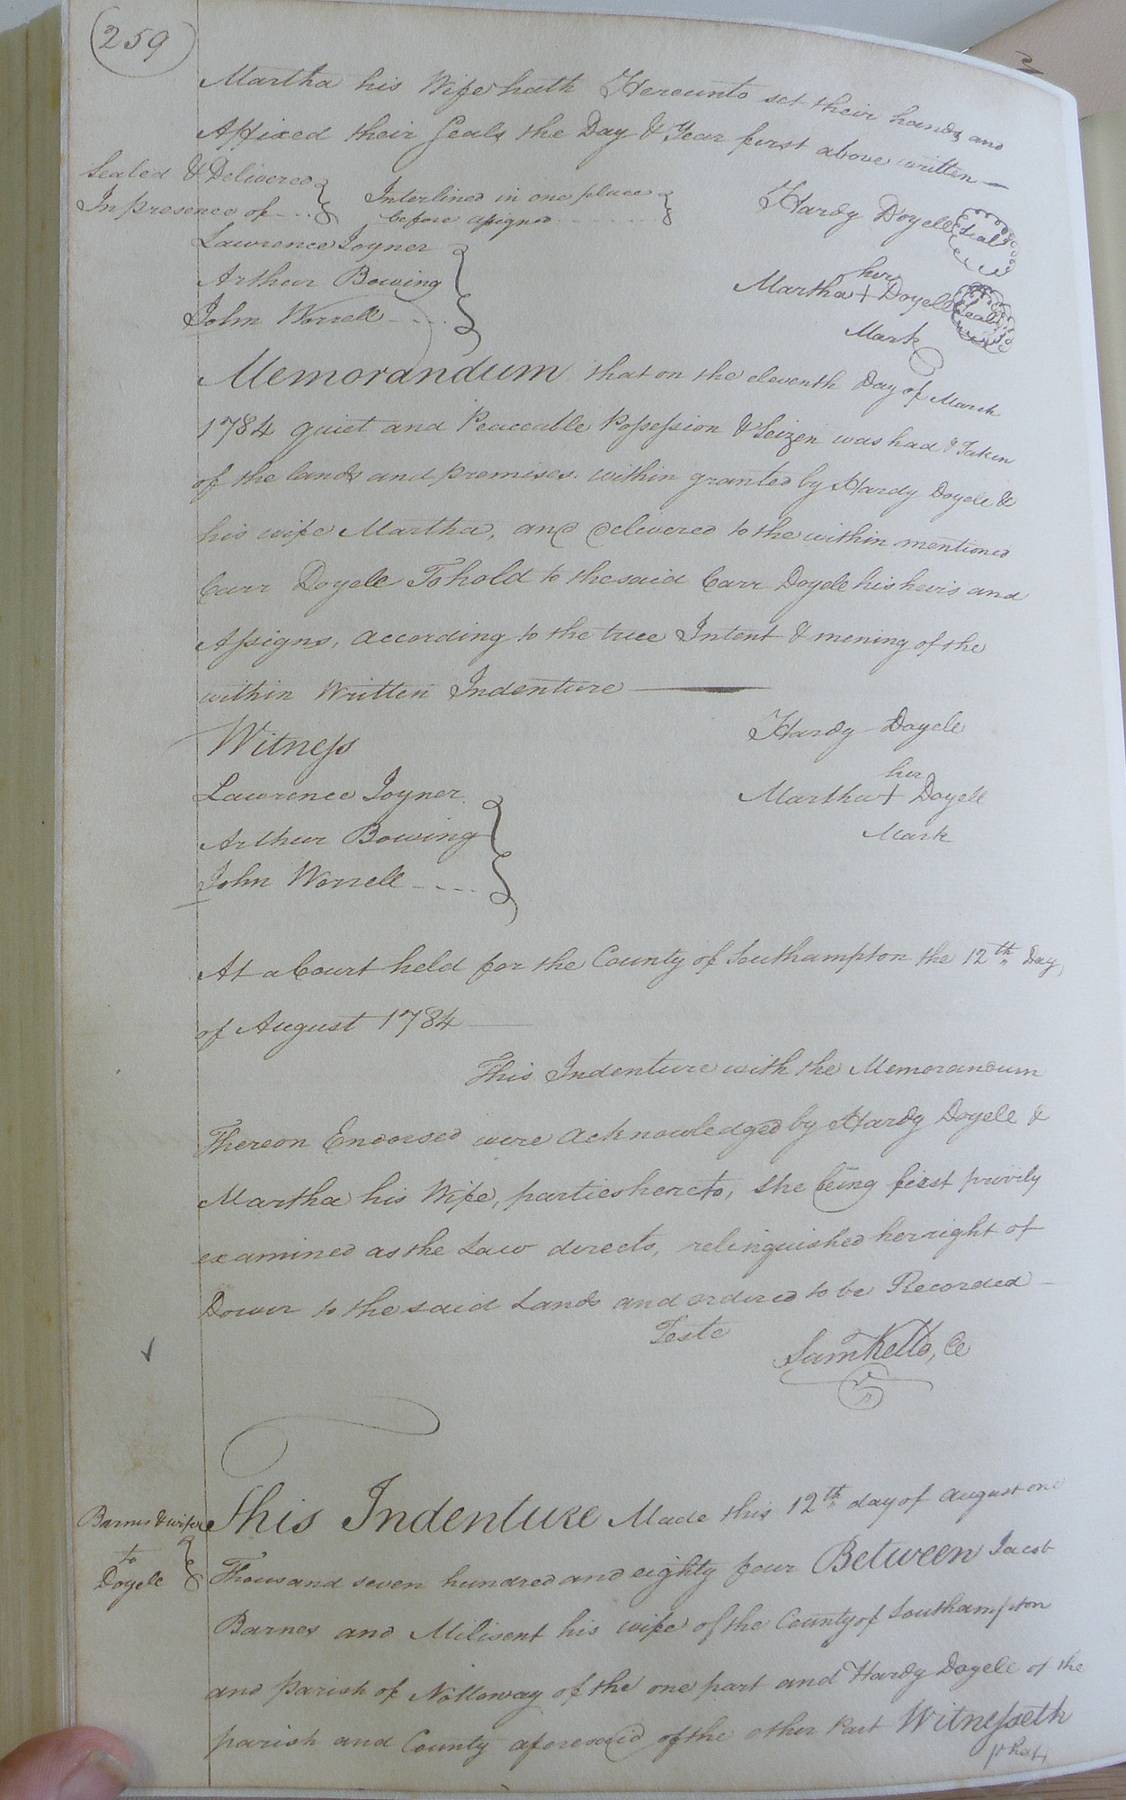 (259)
Martha his Wife hath Hereunto set their hands and
Affixed their Seals the Day & Year first above written
Sealed & Delivered
In presence of
Interlined in one place
before assigned
Hardy Doyell Seal
Lawrence Joyner
Arthur Bowing
John Worrell
her
Martha + Doyell Seal
Mark
Memorandum that on the eleventh Day of March
1784 quiet and Peaceable Possession & Seizen was had & Taken
of the lands and premises within granted by Hardy Doyele &
his wife Martha, and delivered to the within mentioned
Carr Doyele To hold to the said Carr Doyele his heirs and
Assigns, according to the true Intent & mening of the
within Written Indenture
Witness
Hardy Doyele
Lawrence Joyner
Arthur Bowing
John Worrell
her
Martha + Doyell
Mark
At a Court held for the County of Southampton the 12th Day
of August 1784
This Indenture with the Memorandum
Thereon Endorsed were acknowledged by Hardy Doyele &
Martha his Wife, parties hereto, She being first privily
examined as the Law directs, relinquished her right of
Dower to the said Lands and ordered to be Recorded
Teste
Sam Kello, Ce
Barnes & wife
to
Doyele
This Indenture Made this 12th day of august one
Thousand seven hundred and eighty four Between Jacob
Barnes and Milisent his wife of the County of Southampton
and parish of Nottoway of the one part and Hardy Doyele of the
parish and County aforesaid of the other Part Witnesseth
that